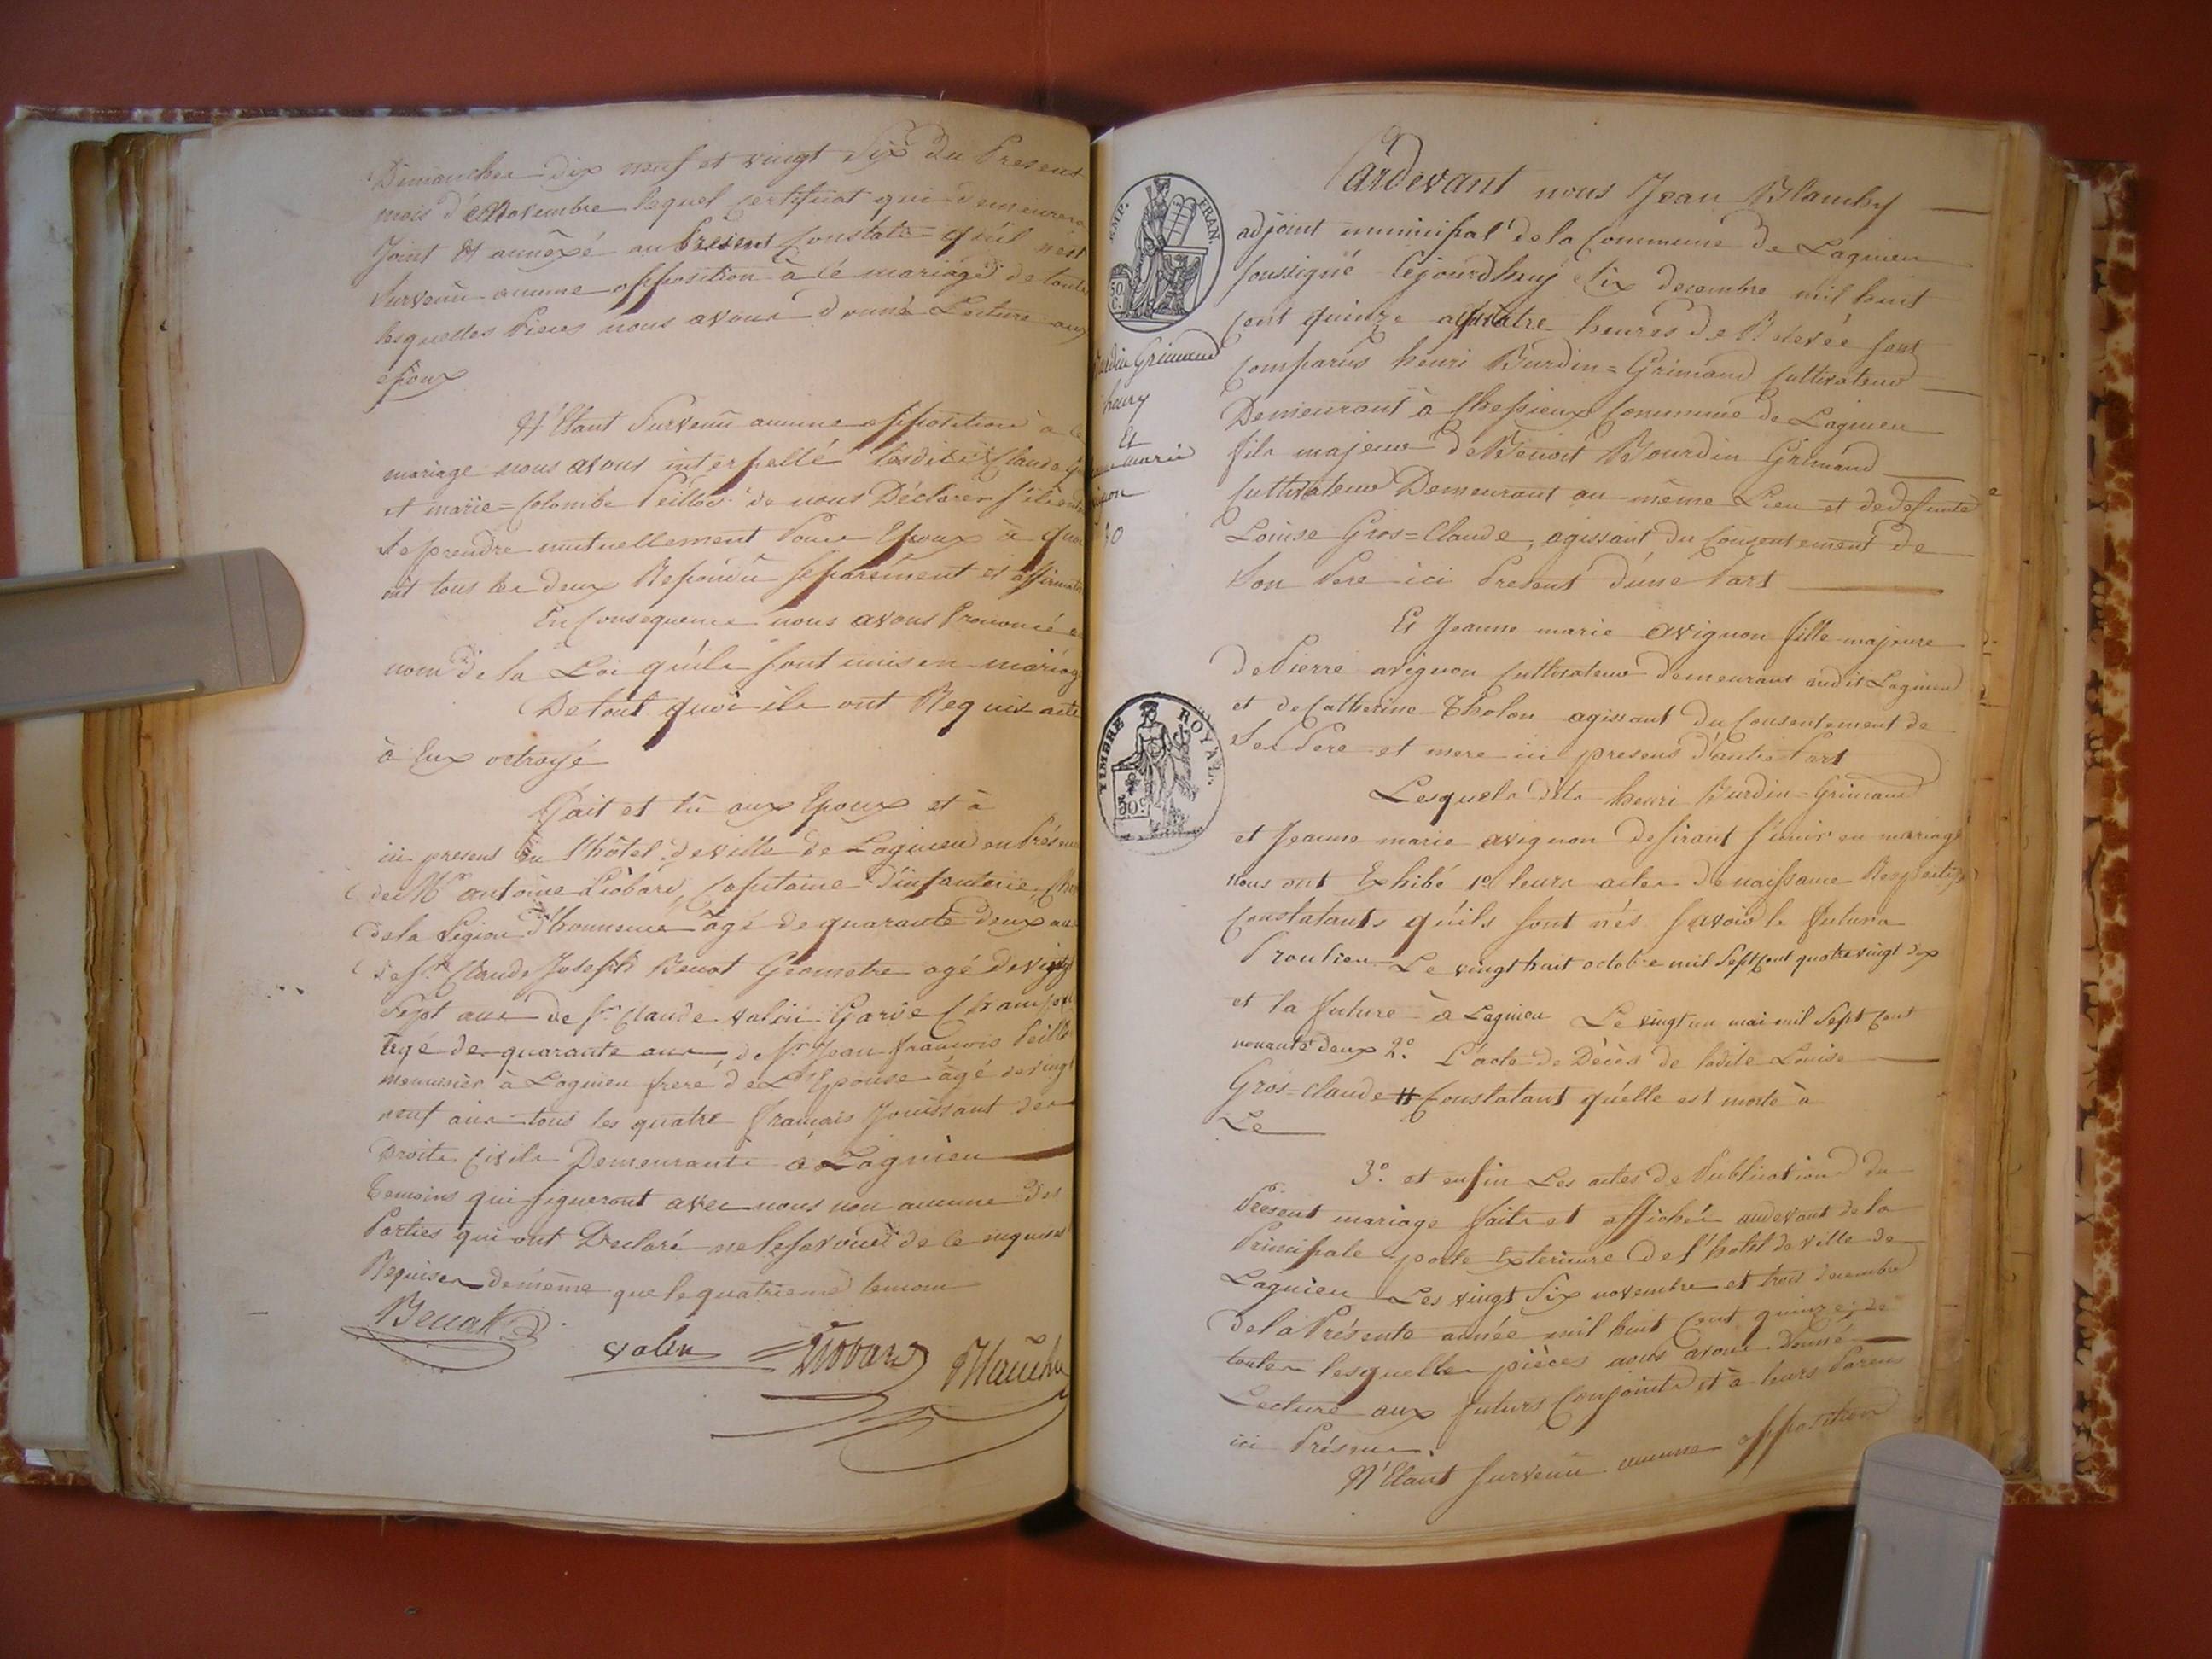 Dimanches dix neuf et vingt Six du Present
mois de Novembre lequel certificat qui demeurera
Joint et annexé au Present Constate qu'il n'est
Survenu aucune opposition à cé mariage de toutes
lesquelles Pieces nous avons donné Lecture aux
époux
N'Etant Survenu aucune opposition à ce
mariage nous avons interpellé lesdits Claude
et marie=Colombe Peilloe de nous Déclarer s'ils
Se prendre mutuellement Pour Epoux à quoi
ont tous les deux Repondu séparément et affirmativ
En Consequence nous avons Prononcé au
nom de la Loi qu'ils sont unis en mariage
De tout quoi ils ont Requis acte
à Eux octroyé
Fait et lû aux Epoux et à
ici presens en l'hôtel de ville de Lagnieu en Présence
des Mr antoine Liobard, Capitaine d'infanterie, Cher
de la Légion d'honneur âgé de quarante deux ans
de Sr Claude Joseph Benoat Géometre agé de vingt
Sept ans de Sr Claude valin Garde Champetre
âgé de quarante ans, de Sr Jean francois Peilloe
menuisier à Lagnieu frere de L'Epouse âgé de vingt
neuf ans tous les quatre français Jouissant des
Droits Civils Demeurants à Lagnieu
temoins qui signeront avec nous non aucune des
Parties qui ont Declaré ne le savoir de ce enquises
Requises de même que le quatrieme temoin
Benoat
valin Liobard Blanchy
EMP. FRAN.
50 C.
Burdin Grimaud
henry
Et
Jeanne marie
avignon
50
TIMBRE ROYAL.
50 c.
Pardevant nous Jean Blanchy
adjoint municipal de la Commune de Lagnieu
soussigné Cejourdhuy Six decembre mil huit
cent quinze a quatre heures de Relevée sont
comparus henri Burdin=Grimaud cultivateur
Demeurant à Chessieux Commune de Lagnieu
fils majeur de Benoit Bourdin Grimaud
cultivateur Demeurant au même Lieu et de defunte
Louise Gros=Claude, agissant du Consentement de
Son Pere ici Present d'une Part
Et Jeanne marie avignon fille majeure
de Pierre avignon cultivateur demeurant audit Lagnieu
et de Catherine Tholon agissant du Consentement de
Ses Pere et mere ici presens d'autre Part
Lesquels dits henri Burdin=Grimaud
et Jeanne marie avignon desirant s'unir en mariage
nous ont Exhibé 1o leurs actes de naissance Respectifs
constatants qu'ils sont nés savoir le futur a
Proulieu Le vingt huit octobre mil Sept Cent quatre vingt dix
et la future à Lagnieu Le vingt un mai mil Sept Cent
nonante deux 2o. L'acte de Décès de ladite Louise
Gros=Claude # Constatant qu'elle est morte à
Le
3o. et enfin Les actes de Publication du
Présent mariage faits et affichés au devant de la
Principale porte Exterieure de l'hotel de ville de
Lagnieu Les vingt Six novembre et trois decembre
de la Présente année mil huit Cent quinze; de
toutes lesquelles pièces nous avons Donné
Lecture aux futurs Conjoints et à leurs Parens
ici Présens.
N'Etant Survenû aucune opposition